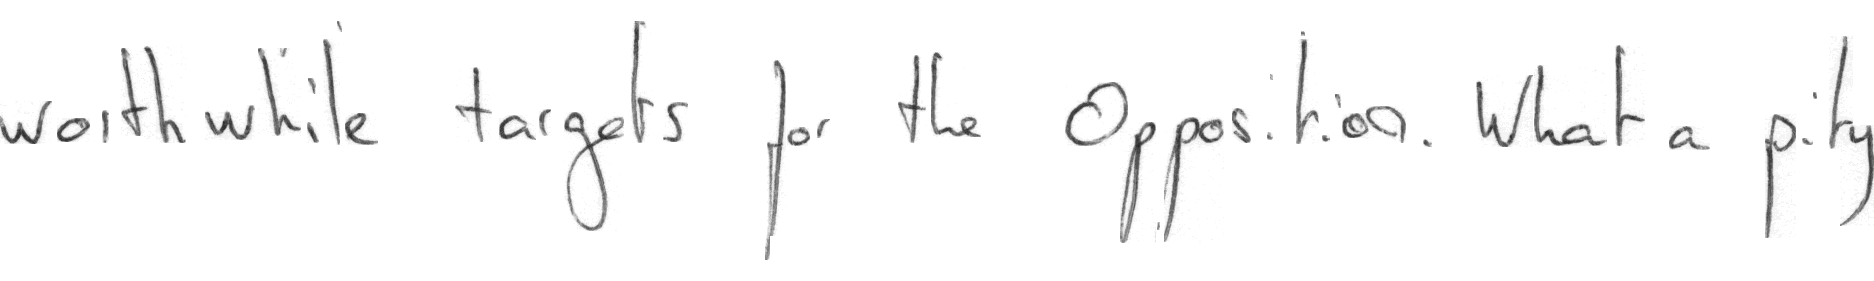 worthwhile targets for the Opposition. What a pity